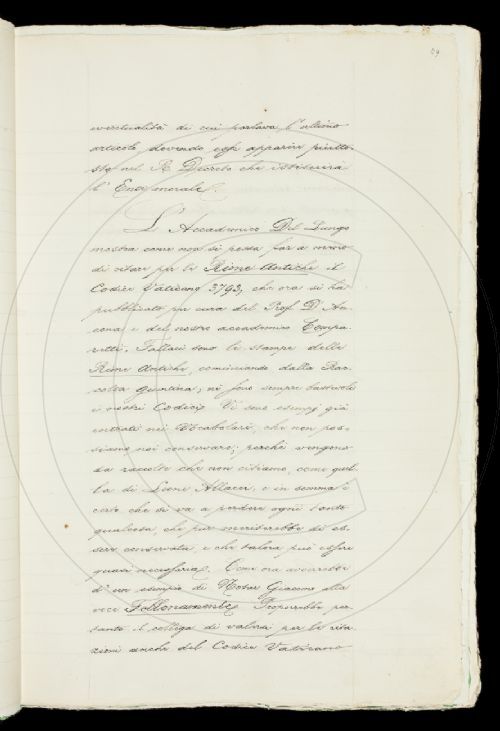 59
eventualità di cui parlava l'ultimo
articolo dovendo egli apparire piutto-
sto nel R. Decreto che istituirà
l'Ente morale.
L'Accademico Del Lungo
mostra come non si possa far a meno
di citare per le Rime Antiche il
Codice Vaticano 3793, che ora si ha
pubblicato per cura del Prof. D'An-
cona e del nostro accademico Compa-
retti. Fallaci sono le stampe delle
Rime Antiche, cominciando dalla Rac-
colta Giuntina; nè sono sempre bastevoli
i nostri Codici. Vi sono esempj già
entrati nei Vocabolari, che non pos-
siamo noi conservare; perchè vengono
da raccolte che non citiamo, come quel-
la di Leone Allacci, e in somma è
certo che si va a perdere ogni tanto
qualcosa, che pur meriterebbe di es-
sere conservata, e che talora può essere
quasi necessaria. Come ora avverrebbe
d'un esempio di Notar Giacomo alla
voce Follonamente. Proporrebbe per-
tanto il collega di valersi per le cita-
zioni anche del Codice Vaticano